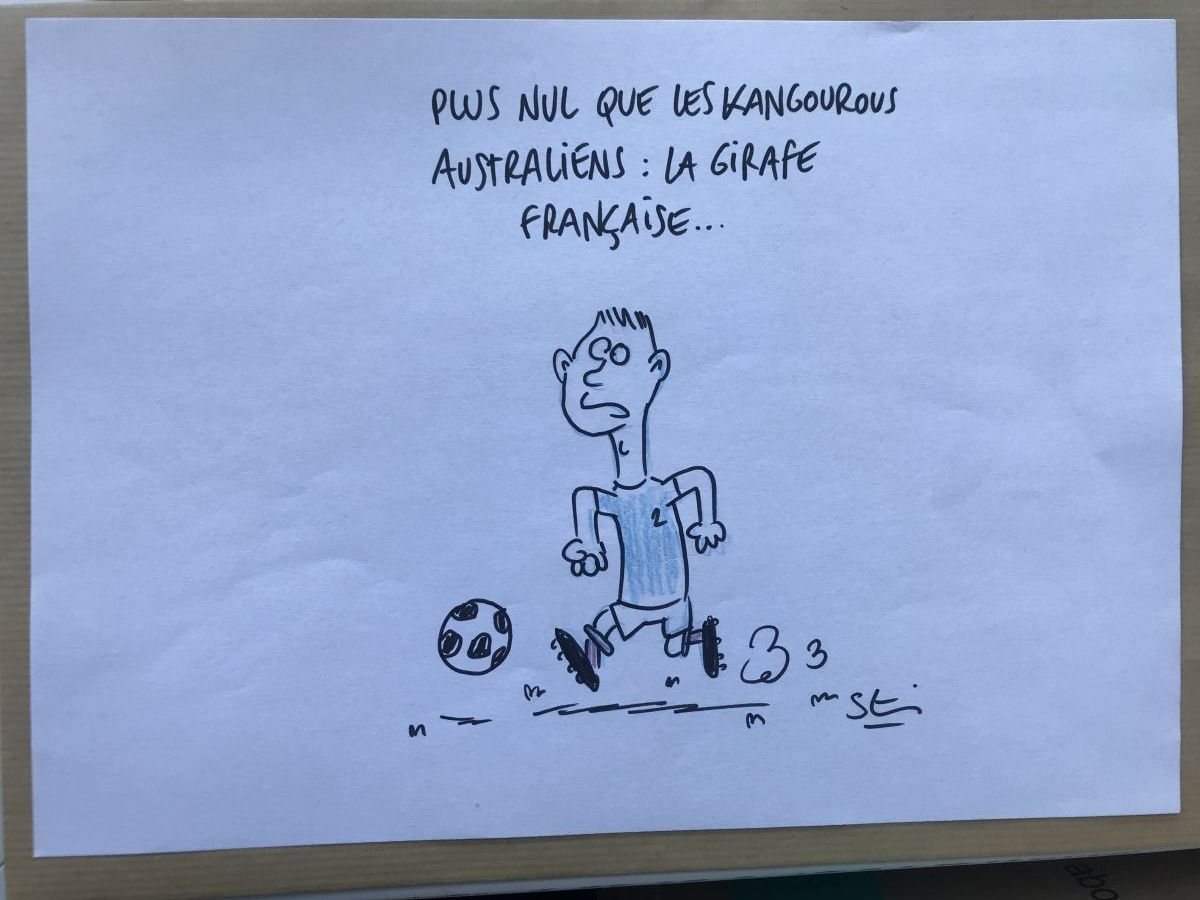 PLUS NUL QUE LES KANGOUROUS
AUSTRALIENS : LA GIRAFE
FRANÇAISE...
2
SEi